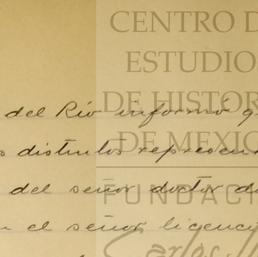 CENTRO D
ESTUDIO
DE HISTOR
DE MEXIC
del Río informó q
distintos represen
del señor doctor d
el señor licenci
FUNDACI
Carlos